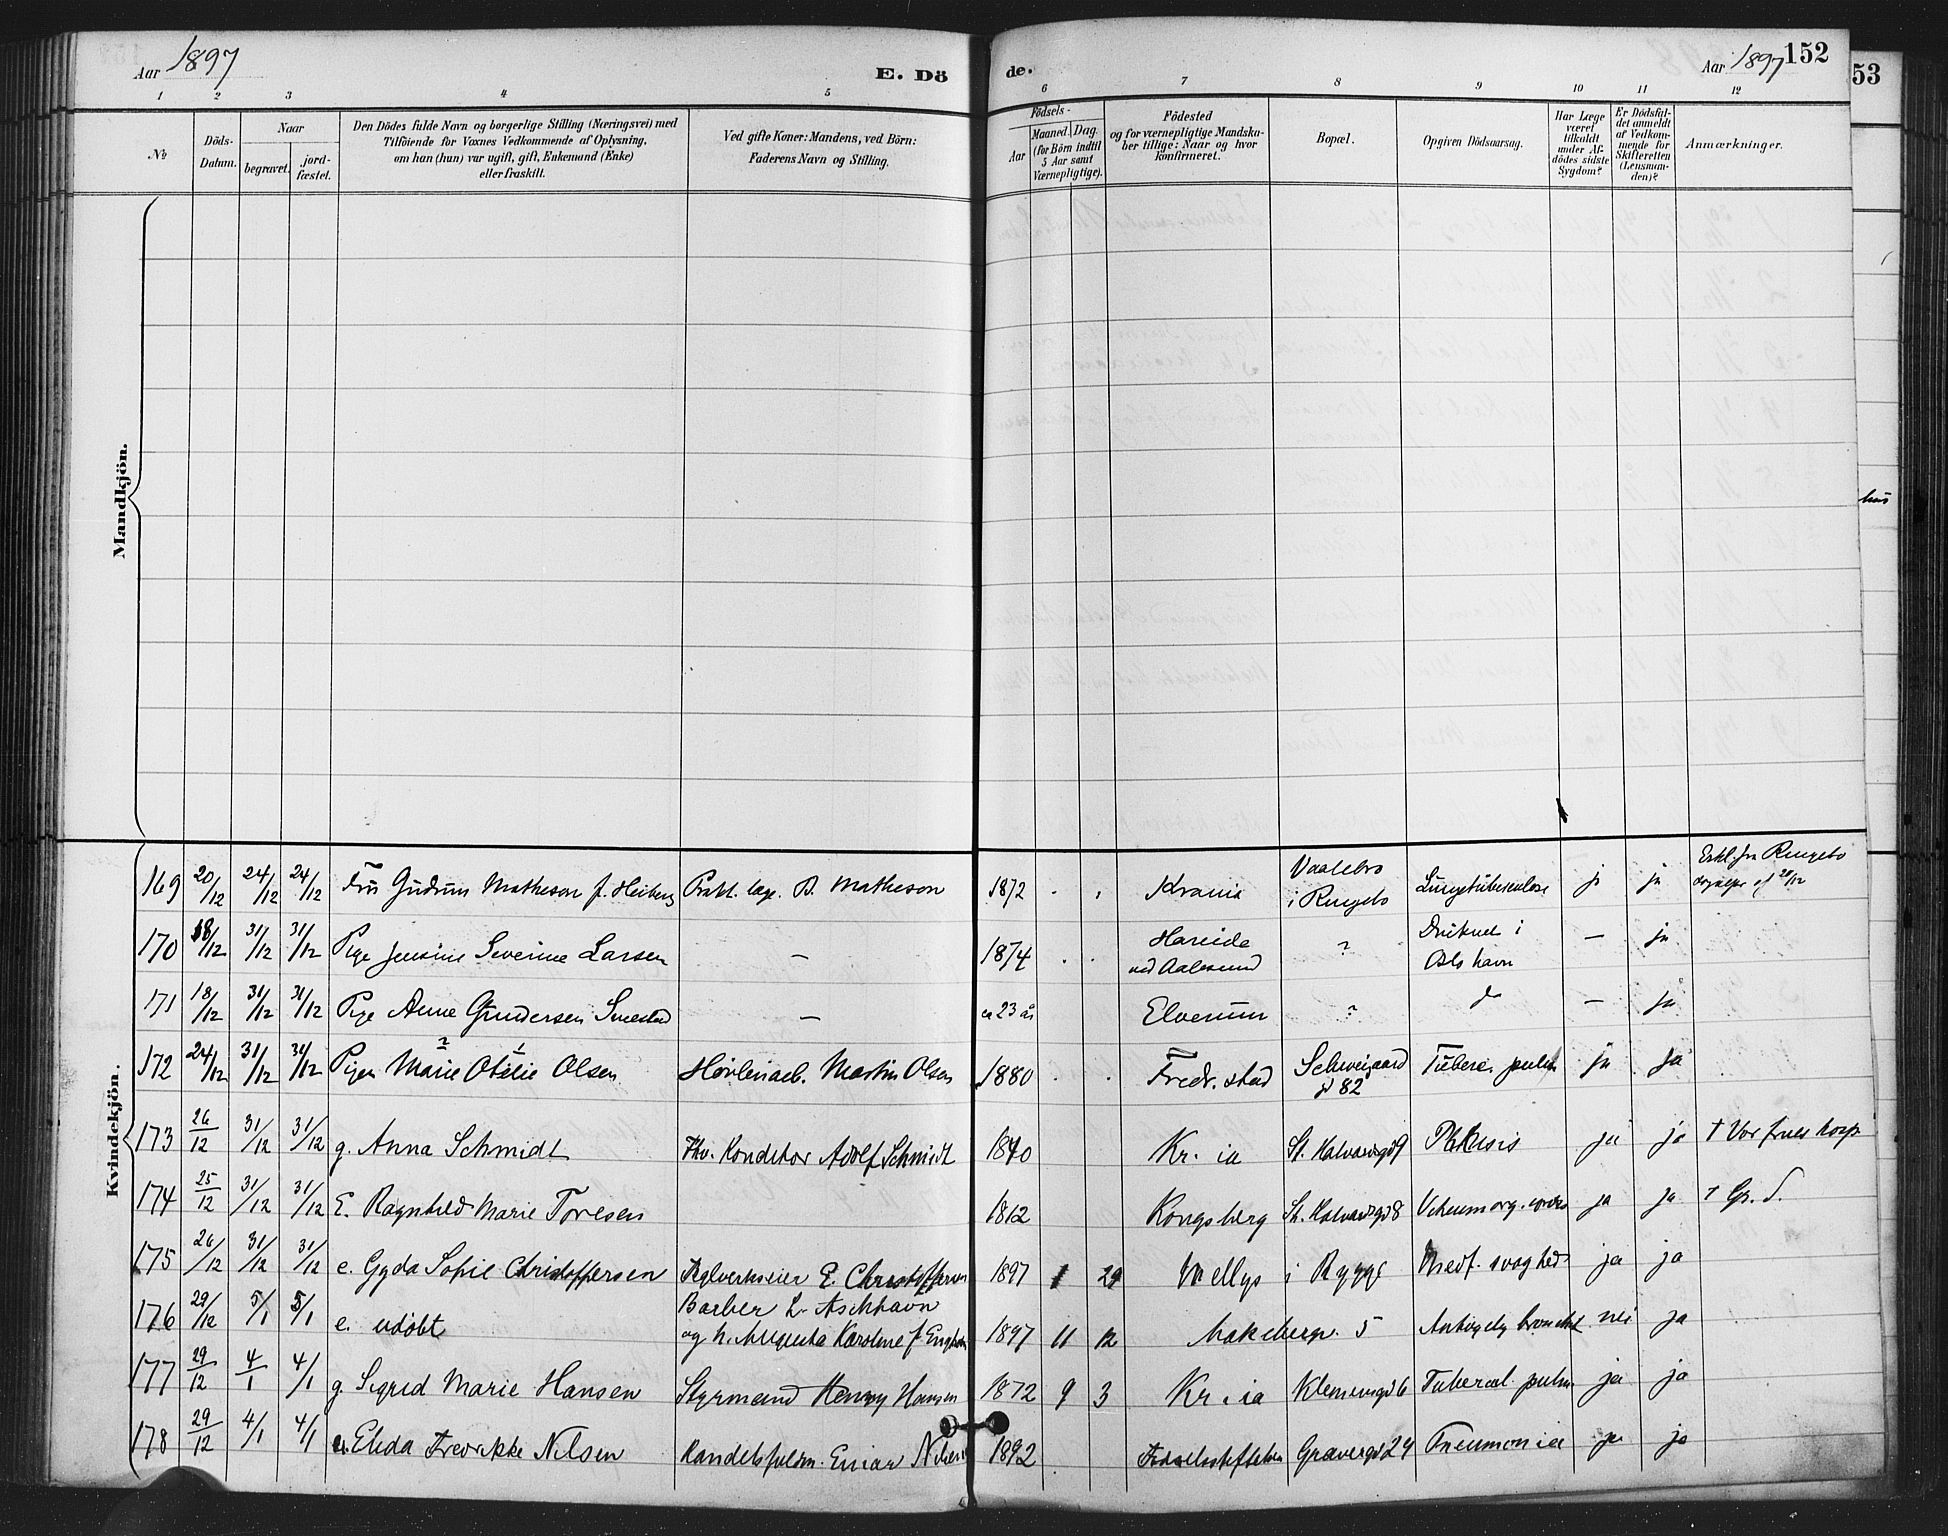 Aar 1897
E. Dö
de.
Aar 1897
152
53
1 2 3 4 5 6 7 8 9 10 11 12
No
Döds-
Datum.
Naar
begravet.
jord-
fæstet.
Den Dödes fulde Navn og borgerlige Stilling (Næringsvei) med
Tilföiende for Voxnes Vedkommende af Oplysning,
om han (hun) var ugift, gift, Enkemand (Enke)
eller fraskilt.
Ved gifte Koner: Mandens, ved Börn:
Faderens Navn og Stilling.
Födsels-
Aar
Maaned.
Dag.
(for Börn indtil
5 Aar samt
Værnepligtige).
Födested
og for værnepligtige Mandska-
ber tillige: Naar og hvor
konfirmeret.
Bopæl.
Opgiven Dödsaarsag.
Har Læge
været
tilkaldt
under Af-
dödes sidste
Sygdom?
Er Dödsfal-
det anmeldt
af Vedkom-
mende for
Skifteretten
(Lensman-
den)?
Anmærkninger.
Mandkjön.
hus
Kvindekjön.
169 20/12 24/12 24/12 Fru Gudrun Matheson f. Heiberg Prakt. læge B. Matheson 1872 Krania Vaalebro i Ringebo Lungetuberculose ja ja Erkl. fra Ringebo
170 18/12 31/12 31/12 Pige Jensine Severine Larsen — 1874 Hareide ved Aalesund ? Druknet i Bls havn — ja
171 18/12 31/12 31/12 Pige Anne Gundersen Smestad — ca 23 år Elverum ? do — ja
172 24/12 31/12 31/12 Pigen Marie Otelie Olsen Høvleriarb. Martin Olsen 1880 Fredr.stad Schweigaard gd 82 Tuberc. pulm ja ja
173 26/12 31/12 31/12 g. Anna Schmidt Fhv. Konditor Adolf Schmidt 1840 Kr.ia St. Halvardsgd 9 Phtisis ja ja † Vor frues hosp
174 25/12 31/12 31/12 E. Ragnhild Marie Toresen 1812 Kongsberg St. Halvardsgd 8 Vitium org. cordis ja ja † Gr. S.
175 26/12 31/12 31/12 e. Gyda Sofie Christoffersen Teglverkseier E. Christoffersen 1897 1 29 Mellys i Rygge Medf. svaghed ja ja
176 29/12 5/1 5/1 e. udöbt Barber L. Aschhavn
og h. Augusta Karoline f. 1897 11 12 Aakebergv. 5 nei ja
177 29/12 4/1 4/1 g. Sigrid Marie Hansen Styrmand Henry Hansen 1872 9 3 Kr.ia Klemensgd 6 Tubercul. pulm ja ja
178 29/12 4/1 4/1 Elida Fredrikke Nilsen Handelsfuldm. Einar Nilsen 1892 Fødselsstiftelsen Grønlergd 24 Pneumonia ja ja